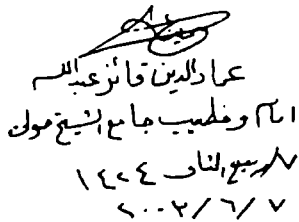 عماد الدين فائز عبدالله
امام وخطيب جامع الشيخ مولى
٧ ربيع الثاني ١٤٢٤
٢٠٠٣/٦/٧